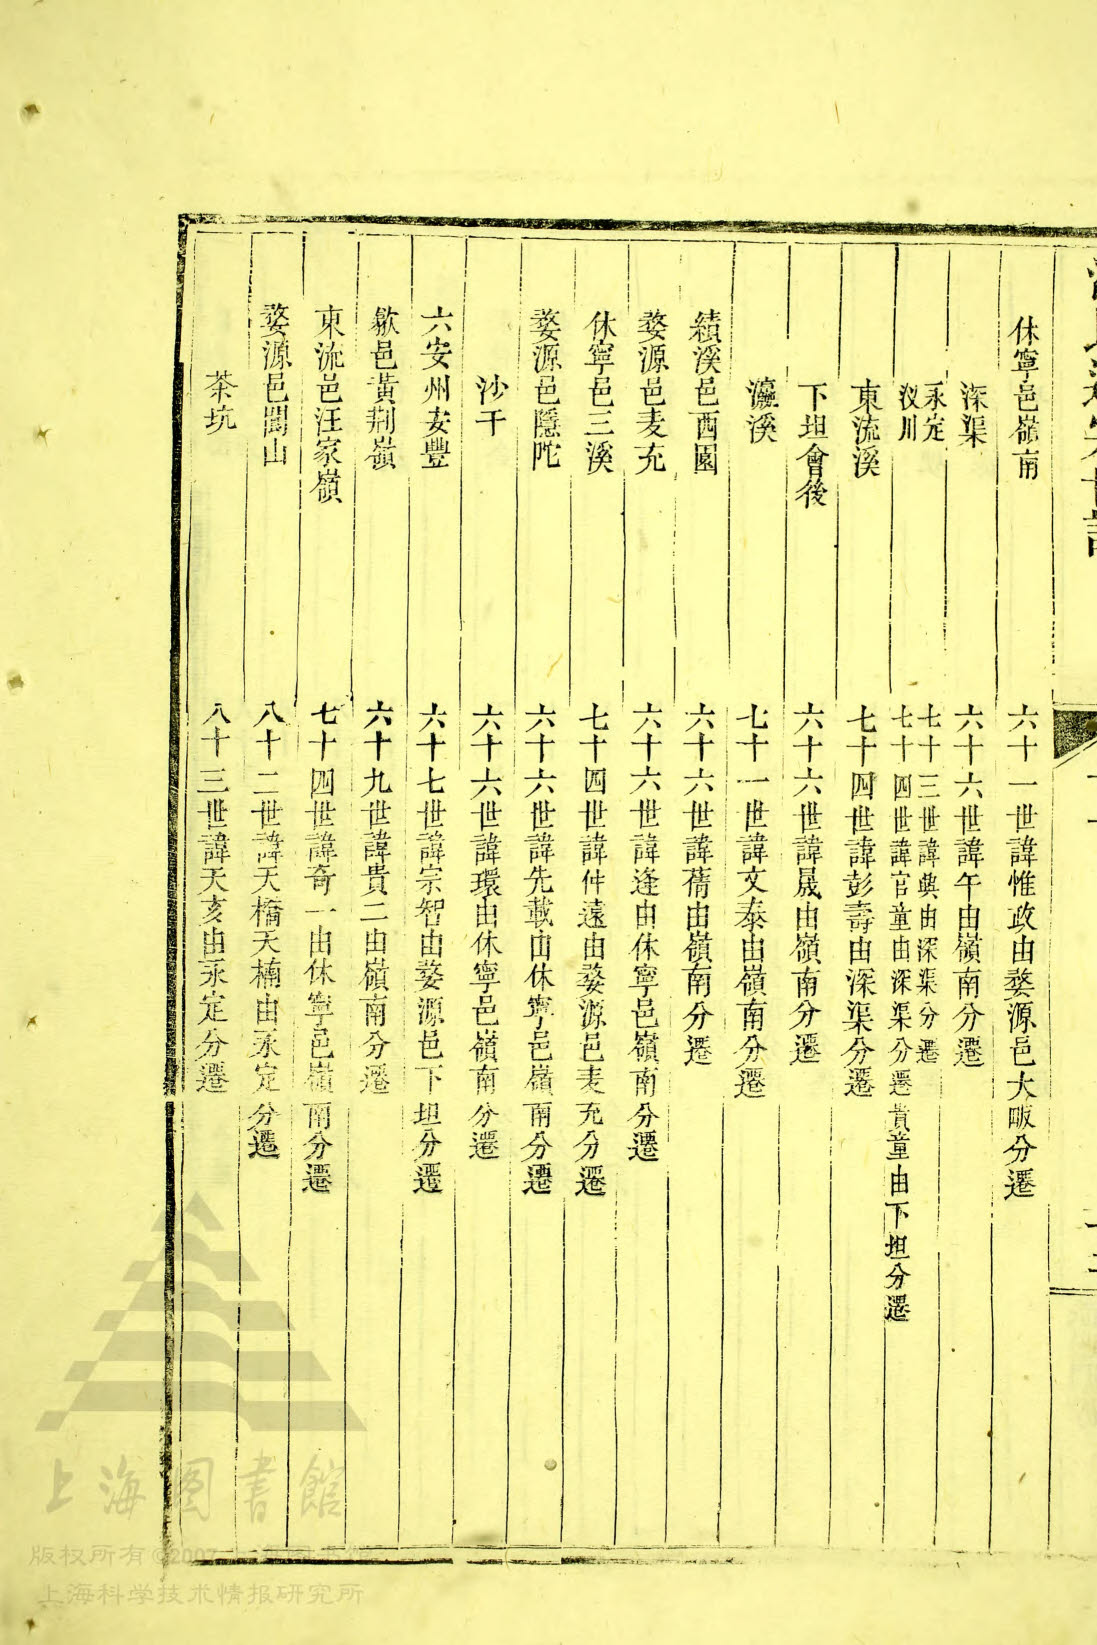 休寧邑嶺南 六十一世諱惟政由婺源邑大畈分遷
深渠 六十六世諱午由嶺南分遷
永定 七十三世諱典由深渠分遷
汊川 七十四世諱官童由深渠分遷貴童由下坦分遷
東流溪 七十四世諱彭壽由深渠分遷
下坦會後 六十六世諱晟由嶺南分遷
瀛溪 七十一世諱文泰由嶺南分遷
績溪邑西園 六十六世諱蒨由嶺南分遷
婺源邑麦充 六十六世諱逢由休寧邑嶺南分遷
休寧邑三溪 七十四世諱仲遠由婺源邑麦充分遷
婺源邑隱陀 六十六世諱先載由休寧邑嶺南分遷
沙干 六十六世諱環由休寧邑嶺南分遷
六安州安豐 六十七世諱宗智由婺源邑下坦分遷
歙邑黃荆嶺 六十九世諱貴二由嶺南分遷
東流邑汪家嶺 七十四世諱奇一由休寧邑嶺南分遷
婺源邑閶山 八十二世諱天橋天楠由永定分遷
茶坑 八十三世諱天亥由永定分遷
上海图書館
版权所有©2007
上海科学技术情报研究所